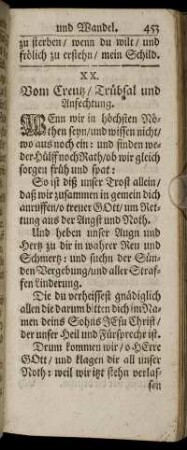 und Wandel. 453
zu sterben/ wenn du wilt/ und
frölich zu erstehn/ mein Schild.
XX.
Vom Creutz/ Trübsal und
Anfechtung.
WEnn wir in höchsten Nö-
then seyn/ und wissen nicht/
wo aus noch ein: und finden we-
der Hülff noch Rath/ ob wir gleich
sorgen früh und spat:
So ist diß unser Trost allein/
daß wir zusammen in gemein dich
anruffen/ o treuer GOtt/ um Ret-
tung aus der Angst und Noth.
Und heben unser Augn und
Hertz zu dir in wahrer Reu und
Schmertz: und suchn der Sün-
den Vergebung/ und aller Straf-
fen Linderung.
Die du verheissest gnädiglich
allen die darum bitten dich im Na-
men deins Sohns JEsu Christ/
der unser Heil und Fürsprechr ist.
Drum kommen wir/ o HErre
GOtt/ und klagen dir all unser
Noth: weil wir itzt stehn verlas-
sen